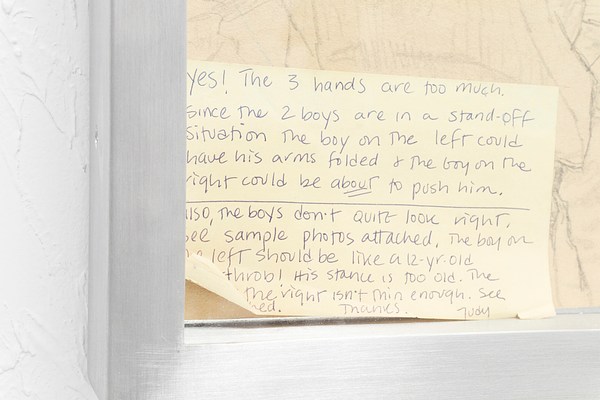 Yes! The 3 hands are too much.
Since the 2 boys are in a stand-off
situation the boy on the left could
have his arms folded & the boy on the
right could be about to push him.
Also, the boys don't quite look right.
See sample photos attached. The boy on
left should be like a 12-yr-old
throb! His stance is too old. The
the right isn't thin enough. See
Thanks. Judy